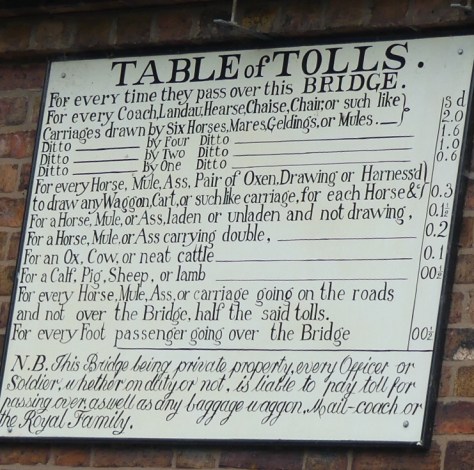 TABLE of TOLLS.
For every time they pass over this BRIDGE.
For every Coach, Landau, Hearse, Chaise, Chair, or such like } s d
Carriages drawn by Six Horses, Mares, Geldings, or Mules. 2.0
Ditto by Four Ditto 1.6
Ditto by Two Ditto 1.0
Ditto by One Ditto 0.6
For every Horse, Mule, Ass, Pair of Oxen, Drawing or Harness'd
to draw any Waggon, Cart, or such like carriage, for each Horse &c 0.3
For a Horse, Mule, or Ass, laden or unladen and not drawing, 0.1½
For a Horse, Mule, or Ass carrying double, 0.2
For an Ox, Cow, or neat cattle 0.1
For a Calf, Pig, Sheep, or lamb 00½
For every Horse, Mule, Ass, or carriage going on the roads
and not over the Bridge, half the said tolls.
For every Foot passenger going over the Bridge 00½
N.B. This Bridge being private property, every Officer or
Soldier, whether on duty or not, is liable to pay toll for
passing over, as well as any baggage waggon, Mail-coach or
the Royal Family.